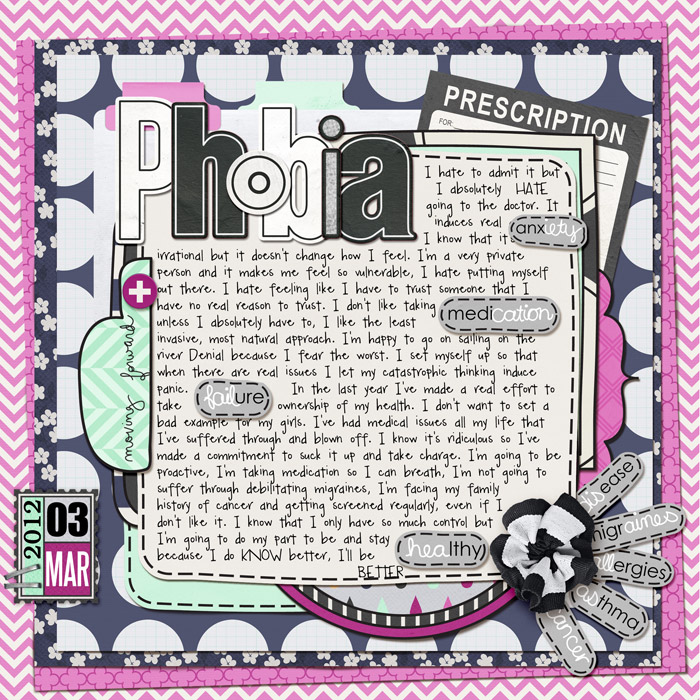 Phobia
PRESCRIPTION
FOR:
I hate to admit it but
I absolutely HATE
going to the doctor. It
induces real anxiety
I know that it's
irrational but it doesn't change how I feel. I'm a very private
person and it makes me feel so vulnerable, I hate putting myself
out there. I hate feeling like I have to trust someone that I
have no real reason to trust. I don't like taking medication
unless I absolutely have to, I like the least
invasive, most natural approach. I'm happy to go on sailing on the
river Denial because I fear the worst. I set myself up so that
when there are real issues I let my catastrophic thinking induce
panic. failure In the last year I've made a real effort to
take ownership of my health. I don't want to set a
bad example for my girls. I've had medical issues all my life that
I've suffered through and blown off. I know it's ridiculous so I've
made a commitment to suck it up and take charge. I'm going to be
proactive, I'm taking medication so I can breath, I'm not going to
suffer through debilitating migraines, I'm facing my family
history of cancer and getting screened regularly, even if I
don't like it. I know that I only have so much control but
I'm going to do my part to be and stay healthy
because I do KNOW better, I'll be
BETTER
moving forward
2012
03
MAR
disease
migraines
allergies
asthma
cancer